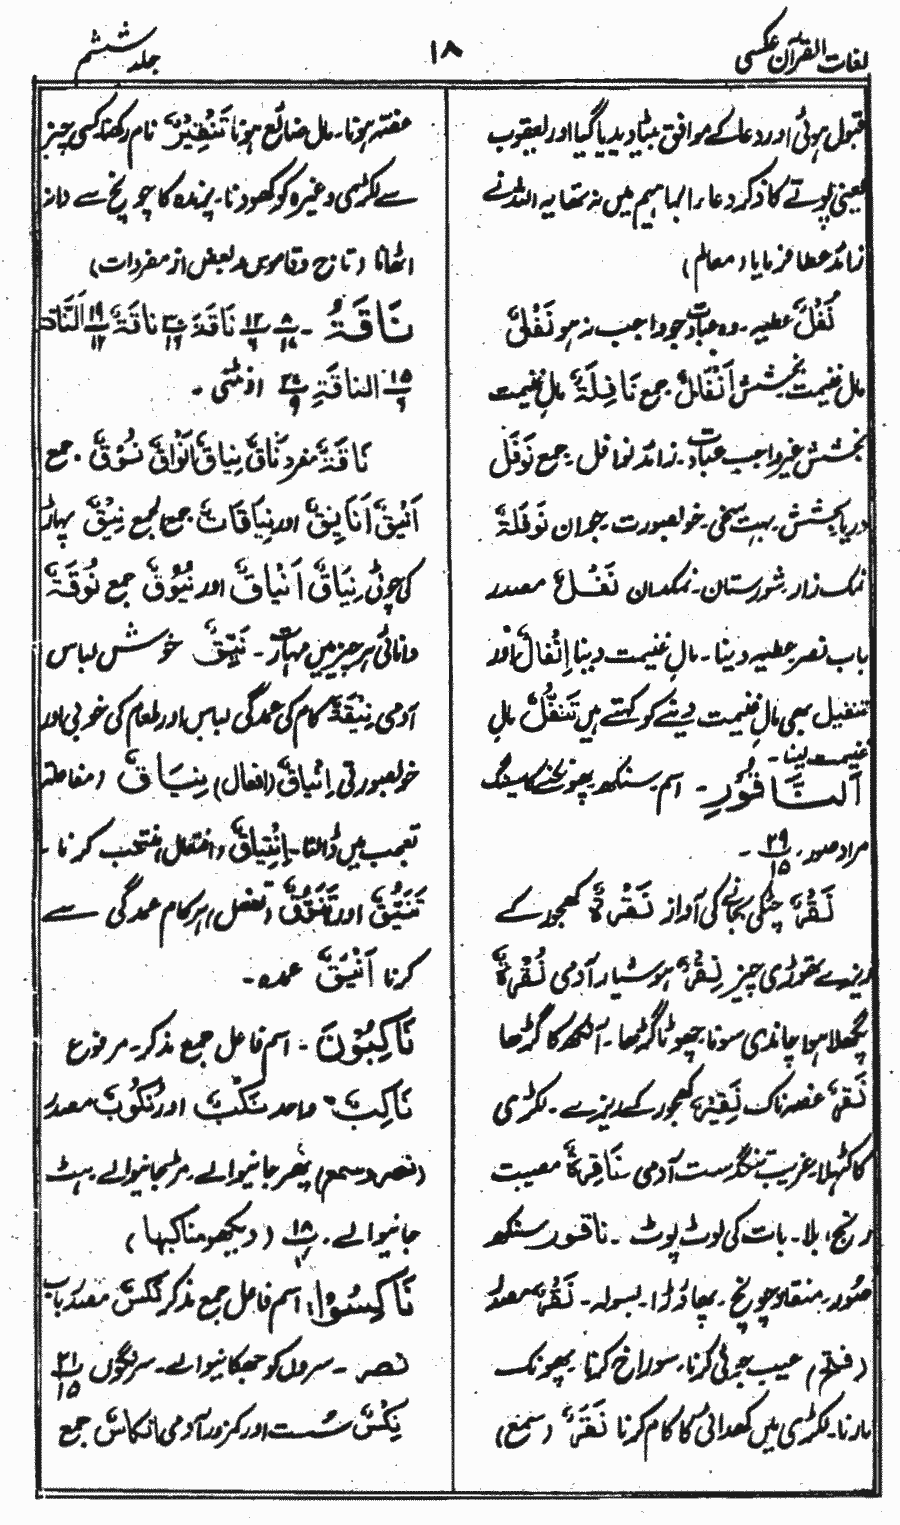 لغات القرآن عکسی
۱۸
جلد ششم
قبول ہوئی اور دعا کے موافق بیٹا دیدیا گیا اور یعقوب
یعنی پوتے کا ذکر دعاء ابراہیم میں نہ تھا یہ اللہ نے
زائد عطا فرمایا (معالم)
نَفْلٌ عطیہ۔ وہ عبادت جو واجب نہ ہو نَفْلِیٌّ
مالِ غنیمت بخشش اَنْفَالٌ جمع نَافِلَۃٌ مالِ غنیمت
بخشش غیر واجب عبادت۔ زائد نوافل جمع نَوْفَلٌ
دریا بخشش۔ بہت سخی۔ خوبصورت جوان نَوْفَلَۃٌ
نمک زار۔ شورستان۔ نمکدان نَفْلٌ مصدر
باب نصر عطیہ دینا۔ مالِ غنیمت دینا اِنْفَالٌ اور
تنفیل بھی مالِ غنیمت دینے کو کہتے ہیں تَنَفُّلٌ مالِ
غنیمت لینا۔
اَلنَّاقُوْرِ۔ اسم۔ سنکھ۔ پھونکنے کا سینگ
مراد صور۔ ۲۹/۱۵ ۔
نَقْرٌ چٹکی بجانے کی آواز نَقْرَۃٌ کھجور کے
ریزے تھوڑی چیز نِقْرٌ ہوشیار آدمی نُقْرَۃٌ
پگھلا ہوا چاندی سونا۔ چھوٹا گڑھا۔ آنکھ کا گڑھا
نَقِرٌ غصہ ناک نَقِیْرٌ کھجور کے ریزے۔ لکڑی
کا کٹھلا۔ غریب تنگدست آدمی نَاقِرَۃٌ مصیبت
رنج، بلا۔ بات کی لوٹ پوٹ۔ ناقور سنکھ
صُور۔ منقار چونچ۔ پھاوڑا۔ بسولہ۔ نَقْرٌ مصدر
(فتح) عیب جوئی کرنا۔ سوراخ کرنا۔ پھونک
مارنا۔ لکڑی میں کھدائی کا کام کرنا نَقَرٌ (سمع)
غصہ ہونا۔ مال ضائع ہونا تَنْقِیْرٌ نام رکھنا کسی چیز
سے لکڑی وغیرہ کو کھودنا۔ پرندہ کا چونچ سے دانہ
اٹھانا (تاج وقاموس وبعض از مفردات)
نَاقَۃُ ۔ ۸/۱۷ ۱۲/۶ نَاقَۃَ نَاقَۃٌ ۱۹/۱۲ اَلنَّاقَۃَ
۱۵/۶ الناقَۃِ ۲۷/۹ اونٹنی۔
نَاقَۃٌ مفرد نَاقٌ نِیَاقٌ اَنْوَاقٌ نُوْقٌ۔ جمع
اَنْیُقٌ اَنَایِقٌ اور نِیَاقَاتٌ جمع الجمع نِیْقٌ پہاڑ
کی چوٹی نِیَاقٌ اَنْیَاقٌ اور نُیُوْقٌ جمع نُوْقَۃٌ
دانائی ہر چیز میں مہارت۔ نَیِّقٌ خوش لباس
آدمی نِیْقَۃٌ کام کی عمدگی لباس اور طعام کی خوبی اور
خوبصورتی اِنَاقٌ (افعال) نِیَاقٌ (مفاعلۃ)
تعجب میں ڈالنا۔ اِنْتِیَاقٌ (افتعال) منتخب کرنا۔
تَنَیُّقٌ اور تَنَوُّقٌ (تفعل) ہر کام عمدگی سے
کرنا اَنْیَقٌ عمدہ۔
نَاکِبُوْنَ ۔ اسم فاعل جمع مذکر۔ مرفوع
نَاکِبٌ۔ واحد نَکْبٌ اور نُکُوْبٌ مصدر
(نصر وسمع) پھر جانیوالے۔ مڑ جانیوالے۔ ہٹ
جانیوالے۔ (دیکھو مناکبہا)
نَاکِسُوْا: اسم فاعل جمع مذکر نَکْسٌ مصدر باب
نصر۔ سروں کو جھکانیوالے۔ سرنگوں ۲۱/۱۵
نِکْسٌ سست اور کمزور آدمی اَنْکَاسٌ جمع